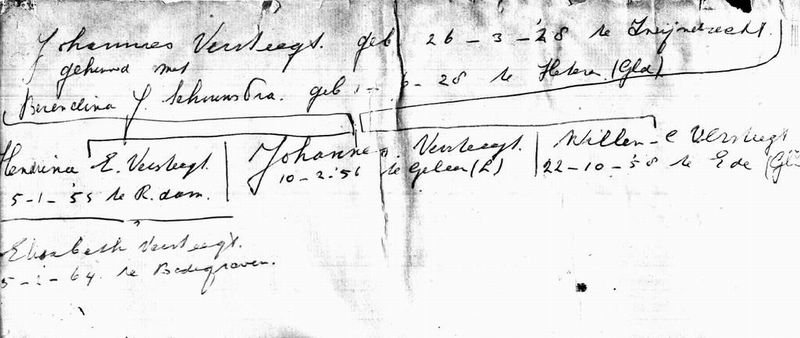 Johannes Versteegt. geb 26-3-28 te Zwijndrecht.
gehuwd met
Berendina J Schuurstra. geb 28 te Heteren (Gld)
Hendrina E. Versteegt. Johannes Versteegt. Willem C Versteegt
5-1-'55 te R.dam. 10-2-'56 te Geleen (L) 22-10-'58 te Ede (Gld
Elisabeth Versteegt.
64 te Bodegraven.